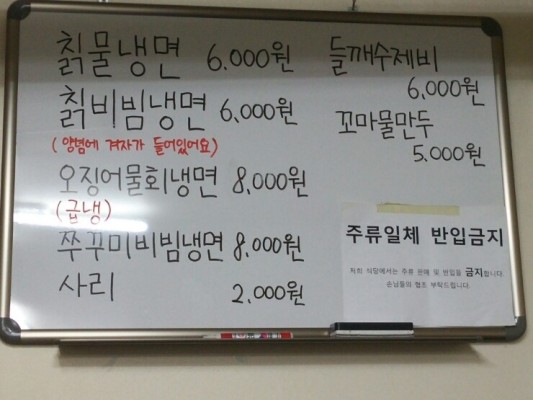 칡물냉면 6.000원
칡비빔냉면 6,000원
(양념에 겨자가 들어있어요)
오징어물회냉면 8,000원
(급냉)
쭈꾸미비빔냉면 8,000원
사리 2.000원
들깨수제비
6,000원
꼬마물만두
5.000원
주류일체 반입금지
저희 식당에서는 주류 판매 및 반입을 금지합니다.
손님들의 협조 부탁드립니다.